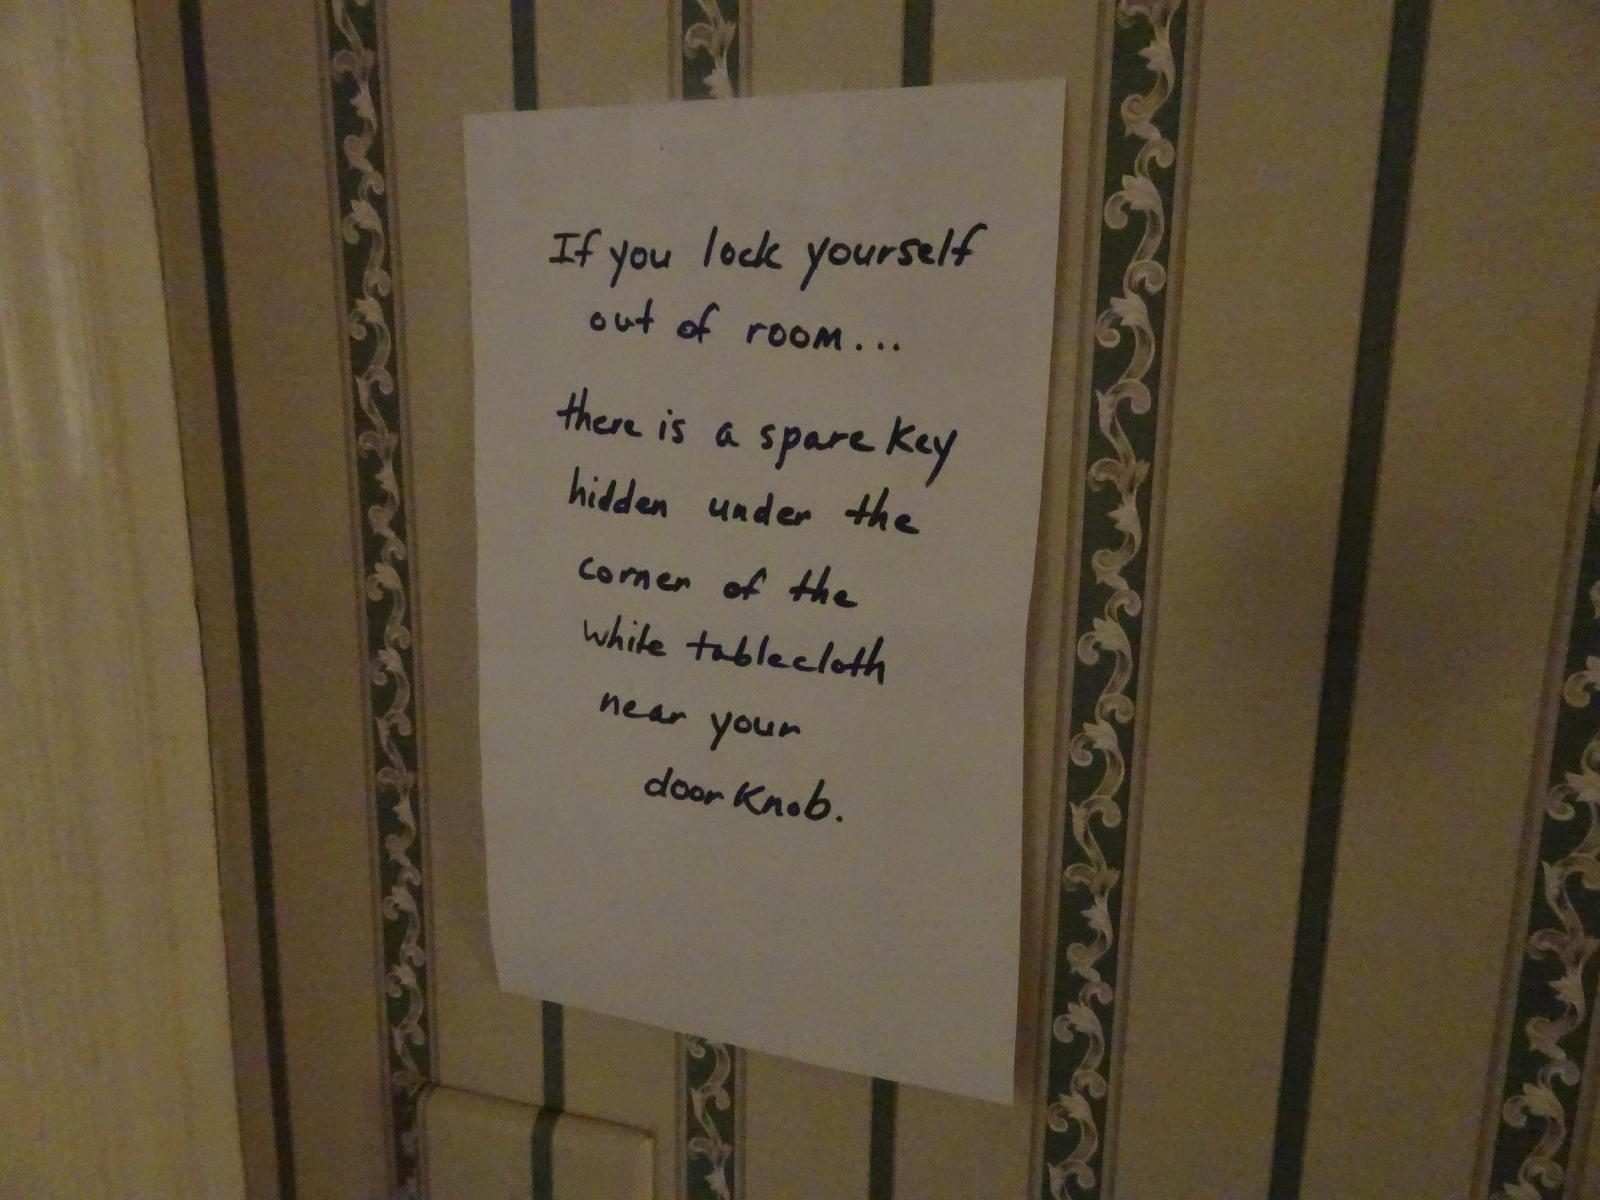 If you lock yourself
out of room...
there is a spare key
hidden under the
corner of the
white tablecloth
near your
door knob.